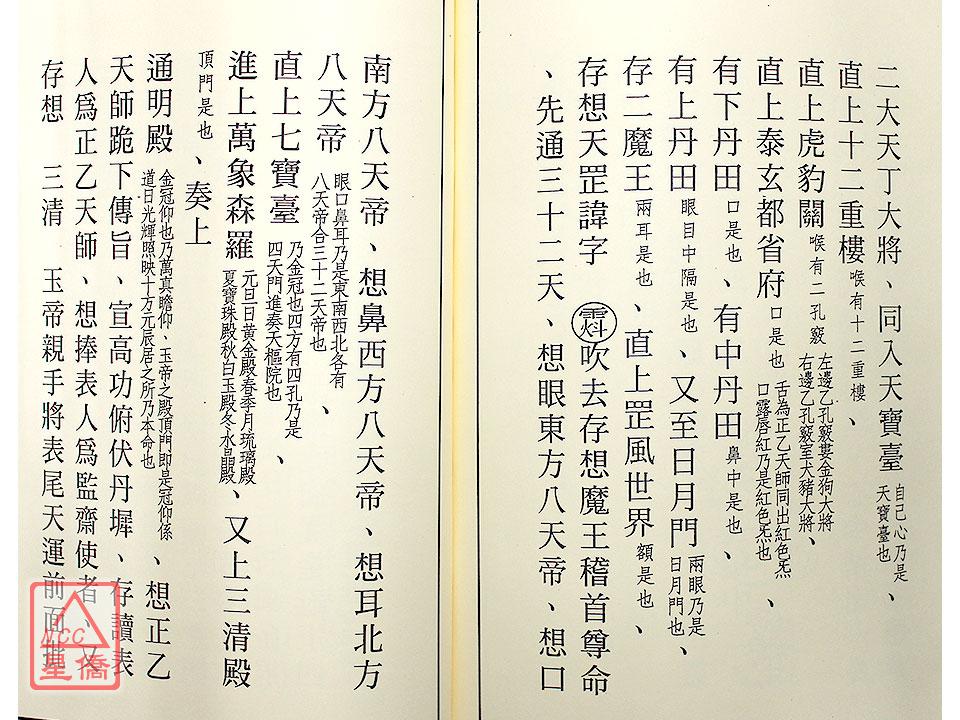 二大天丁大將、同入天寶臺自己心乃是天寶臺也、
直上十二重樓喉有十二重樓、
直上虎豹關喉有二孔竅左邊乙孔竅婁金狗大將右邊乙孔竅室火豬大將、
直上泰玄都省府口是也舌為正乙天師同出紅色炁口露唇紅乃是紅色炁也、
有下丹田口是也、有中丹田鼻中是也、
有上丹田眼目中隔是也、又至日月門兩眼乃是日月門也、
存二魔王兩耳是也、直上罡風世界額是也、
存想天罡諱字 吹去存想魔王稽首尊命
、先通三十二天、想眼東方八天帝、想口
南方八天帝、想鼻西方八天帝、想耳北方
八天帝眼口鼻耳乃是東南西北各有八天帝合三十二天帝也、
直上七寶臺乃金冠也四方有四孔乃是四天門進奏天樞院也、
進上萬象森羅元旦日黃金殿春季月琉璃殿夏寶珠殿秋白玉殿冬水晶殿、又上三清殿
頂門是也、奏上
通明殿金冠仰也乃萬真瞻仰、玉帝之殿頂門即是冠仰係道日光輝照映十方元辰居之所乃本命也、想正乙
天師跪下傳旨、宣高功俯伏丹墀、存讀表
人為正乙天師、想捧表人為監齋使者、又
存想 三清 玉帝親手將表尾天運前面批
NCC
星僑